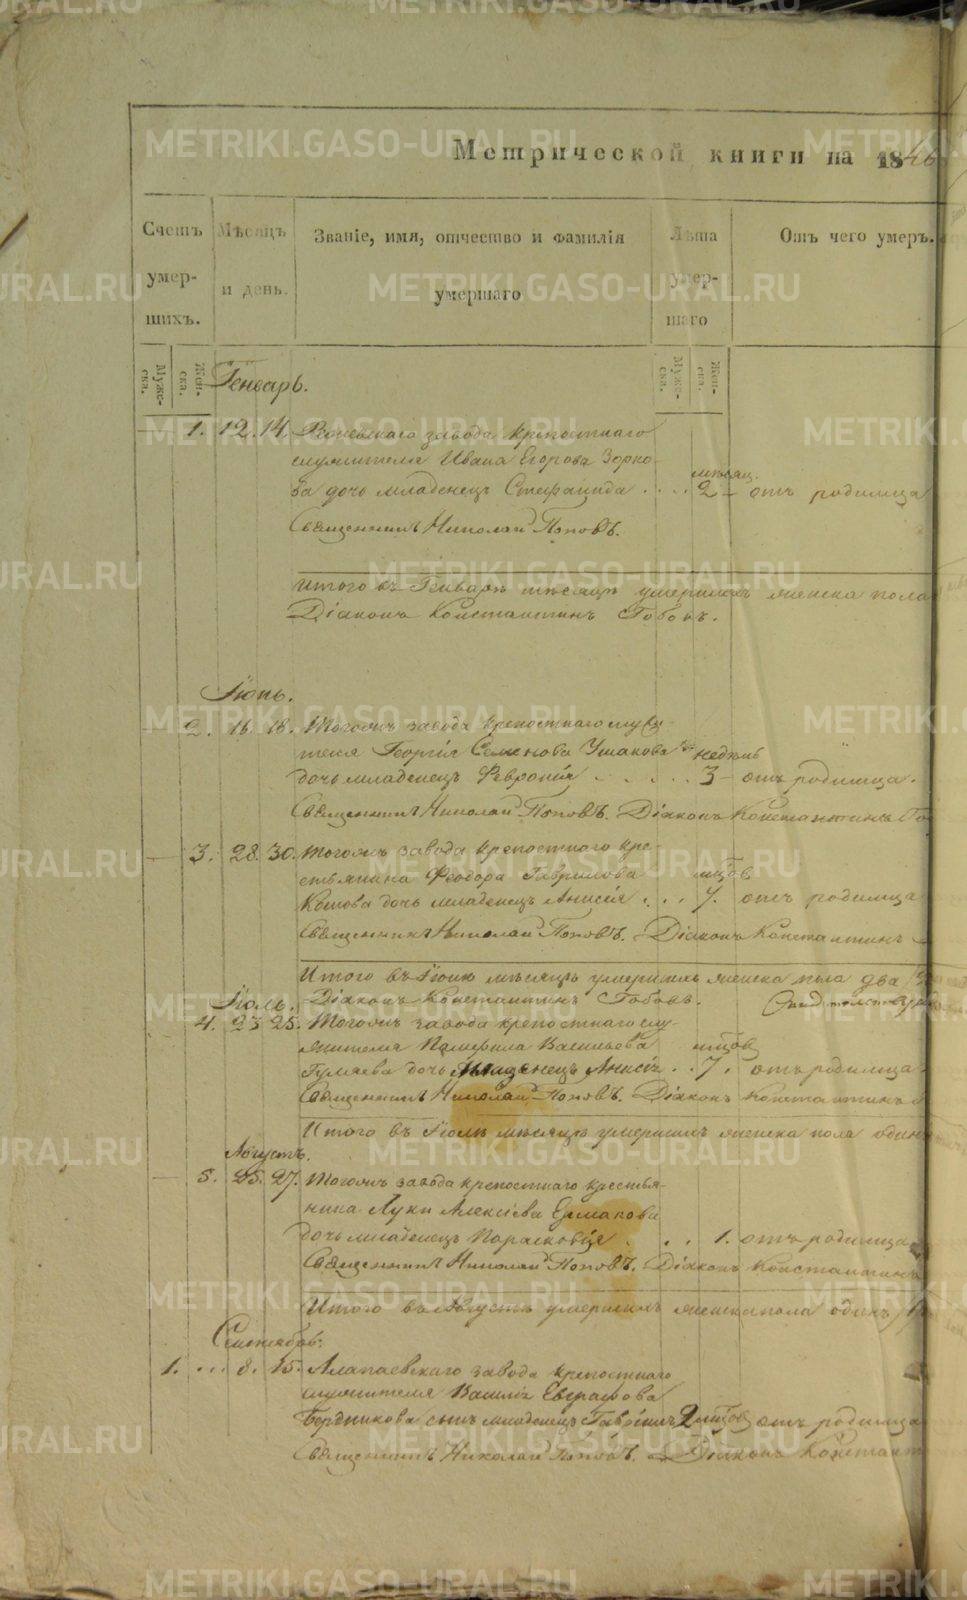 Метрической книги на 1846
Счетъ умершихъ.
Мѣсяцъ и день.
Званіе, имя, отчество и фамилія умершаго
Лѣта умершаго
Отъ чего умеръ.
Муже-ска.
Жен-ска.
Муже-ска.
Жен-ска.
Генварь.
1. 12. 14. завода крепостнаго
служителя Ивана Егорова Зорко-
ва дочь младенецъ Стефанида . . . . мѣсяц. 2 – отъ родимца
Священникъ Николай Поповъ.
Итого въ Генварѣ мѣсяцѣ умершихъ женска пола
Діаконъ Константинъ
Іюнь.
2. 16. 18. Тогожъ завода крепостнаго служи-
теля Георгія Семенова Ушакова недѣль
дочь младенецъ Февронія . . . . . 3 – отъ родимца.
Священникъ Николай Поповъ. Діаконъ Константинъ
3. 28. 30. Тогожъ завода крепостнаго кре-
стьянина Феодора Гаврилова мцов
дочь младенецъ Анисія . . . 7. отъ родимца
Священникъ Николай Поповъ. Діаконъ Константинъ
Итого въ Іюнѣ мѣсяцѣ умершихъ женска пола два
Діаконъ Константинъ
Іюль.
4. 23 25. Тогожъ завода крепостнаго слу-
жителя Васильева мцов
дочь младенецъ . . 7. отъ родимца
Священникъ Николай Поповъ. Діаконъ Константинъ
Итого въ Іюлѣ мѣсяцѣ умершихъ женска пола одинъ
Августъ.
5. 25. 27. Тогожъ завода крепостнаго крестья-
нина Луки Алексіева Ермакова
дочь младенецъ . . . 1. отъ родимца
Священникъ Николай Поповъ. Діаконъ Константинъ
Итого въ Августѣ умершихъ женска пола одинъ
Сентябрь.
1. ... 8. 15. Алапаевскаго завода крепостнаго
служителя Евграфова
Бердникова сынъ младенецъ 2 мцов отъ родимца
Священникъ Николай Поповъ. Діаконъ
METRIKI.GASO-URAL.RU